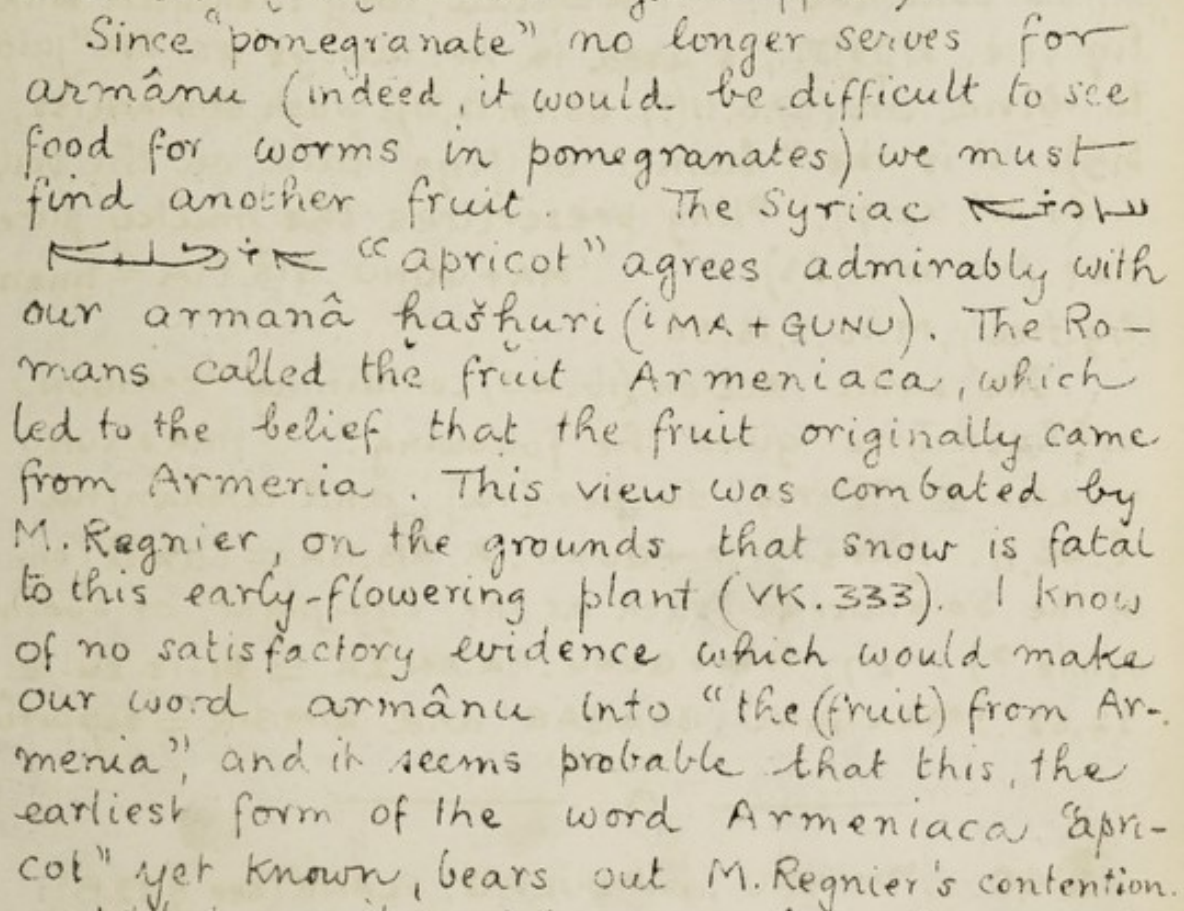 Since "pomegranate" no longer serves for
armânu (indeed, it would be difficult to see
food for worms in pomegranates) we must
find another fruit. The Syriac
"apricot" agrees admirably with
our armanâ ḫašḫuri (iMA + GUNU). The Ro-
mans called the fruit Armeniaca, which
led to the belief that the fruit originally came
from Armenia. This view was combated by
M. Regnier, on the grounds that snow is fatal
to this early-flowering plant (VK. 333). I know
of no satisfactory evidence which would make
our word armânu into "the (fruit) from Ar-
menia", and it seems probable that this, the
earliest form of the word Armeniaca "apri-
cot" yet known, bears out M. Regnier's contention.